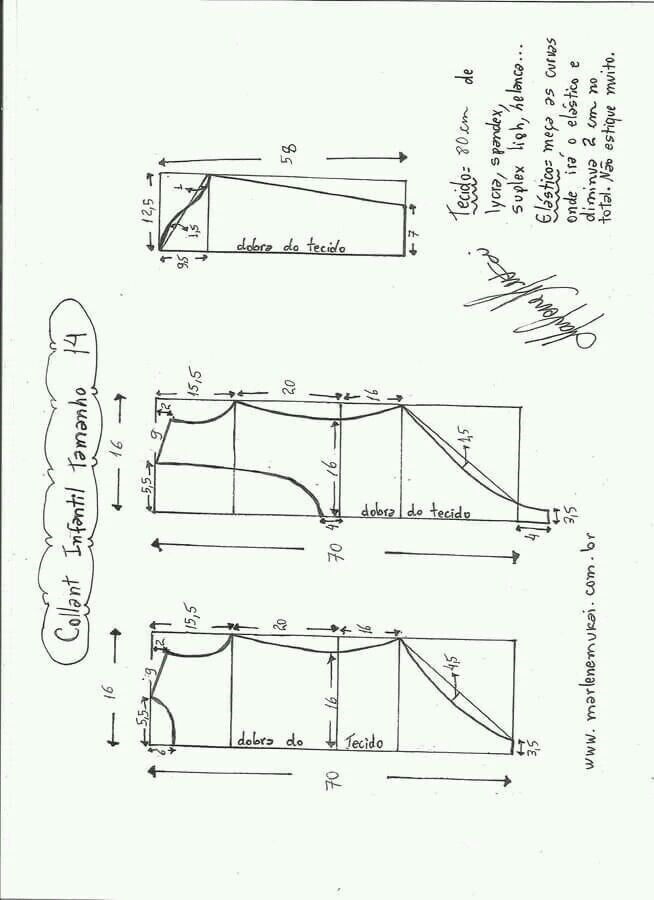 Collant Infantil Tamanho 14
16
15,5
2
9
5,5
6
20
16
16
dobra do Tecido
4,5
3,5
70
16
15,5
2
9
5,5
20
16
16
4
dobra do tecido
1,5
4
3,5
70
58
12,5
1
1,5
9,5
dobra do tecido
7
Tecido= 80cm de
lycra, spandex,
suplex ligh, helanca...
Elástico= meça as curvas
onde irá o elástico e
diminua 2 cm no
total. Não estique muito.
www.marlenemukai.com.br